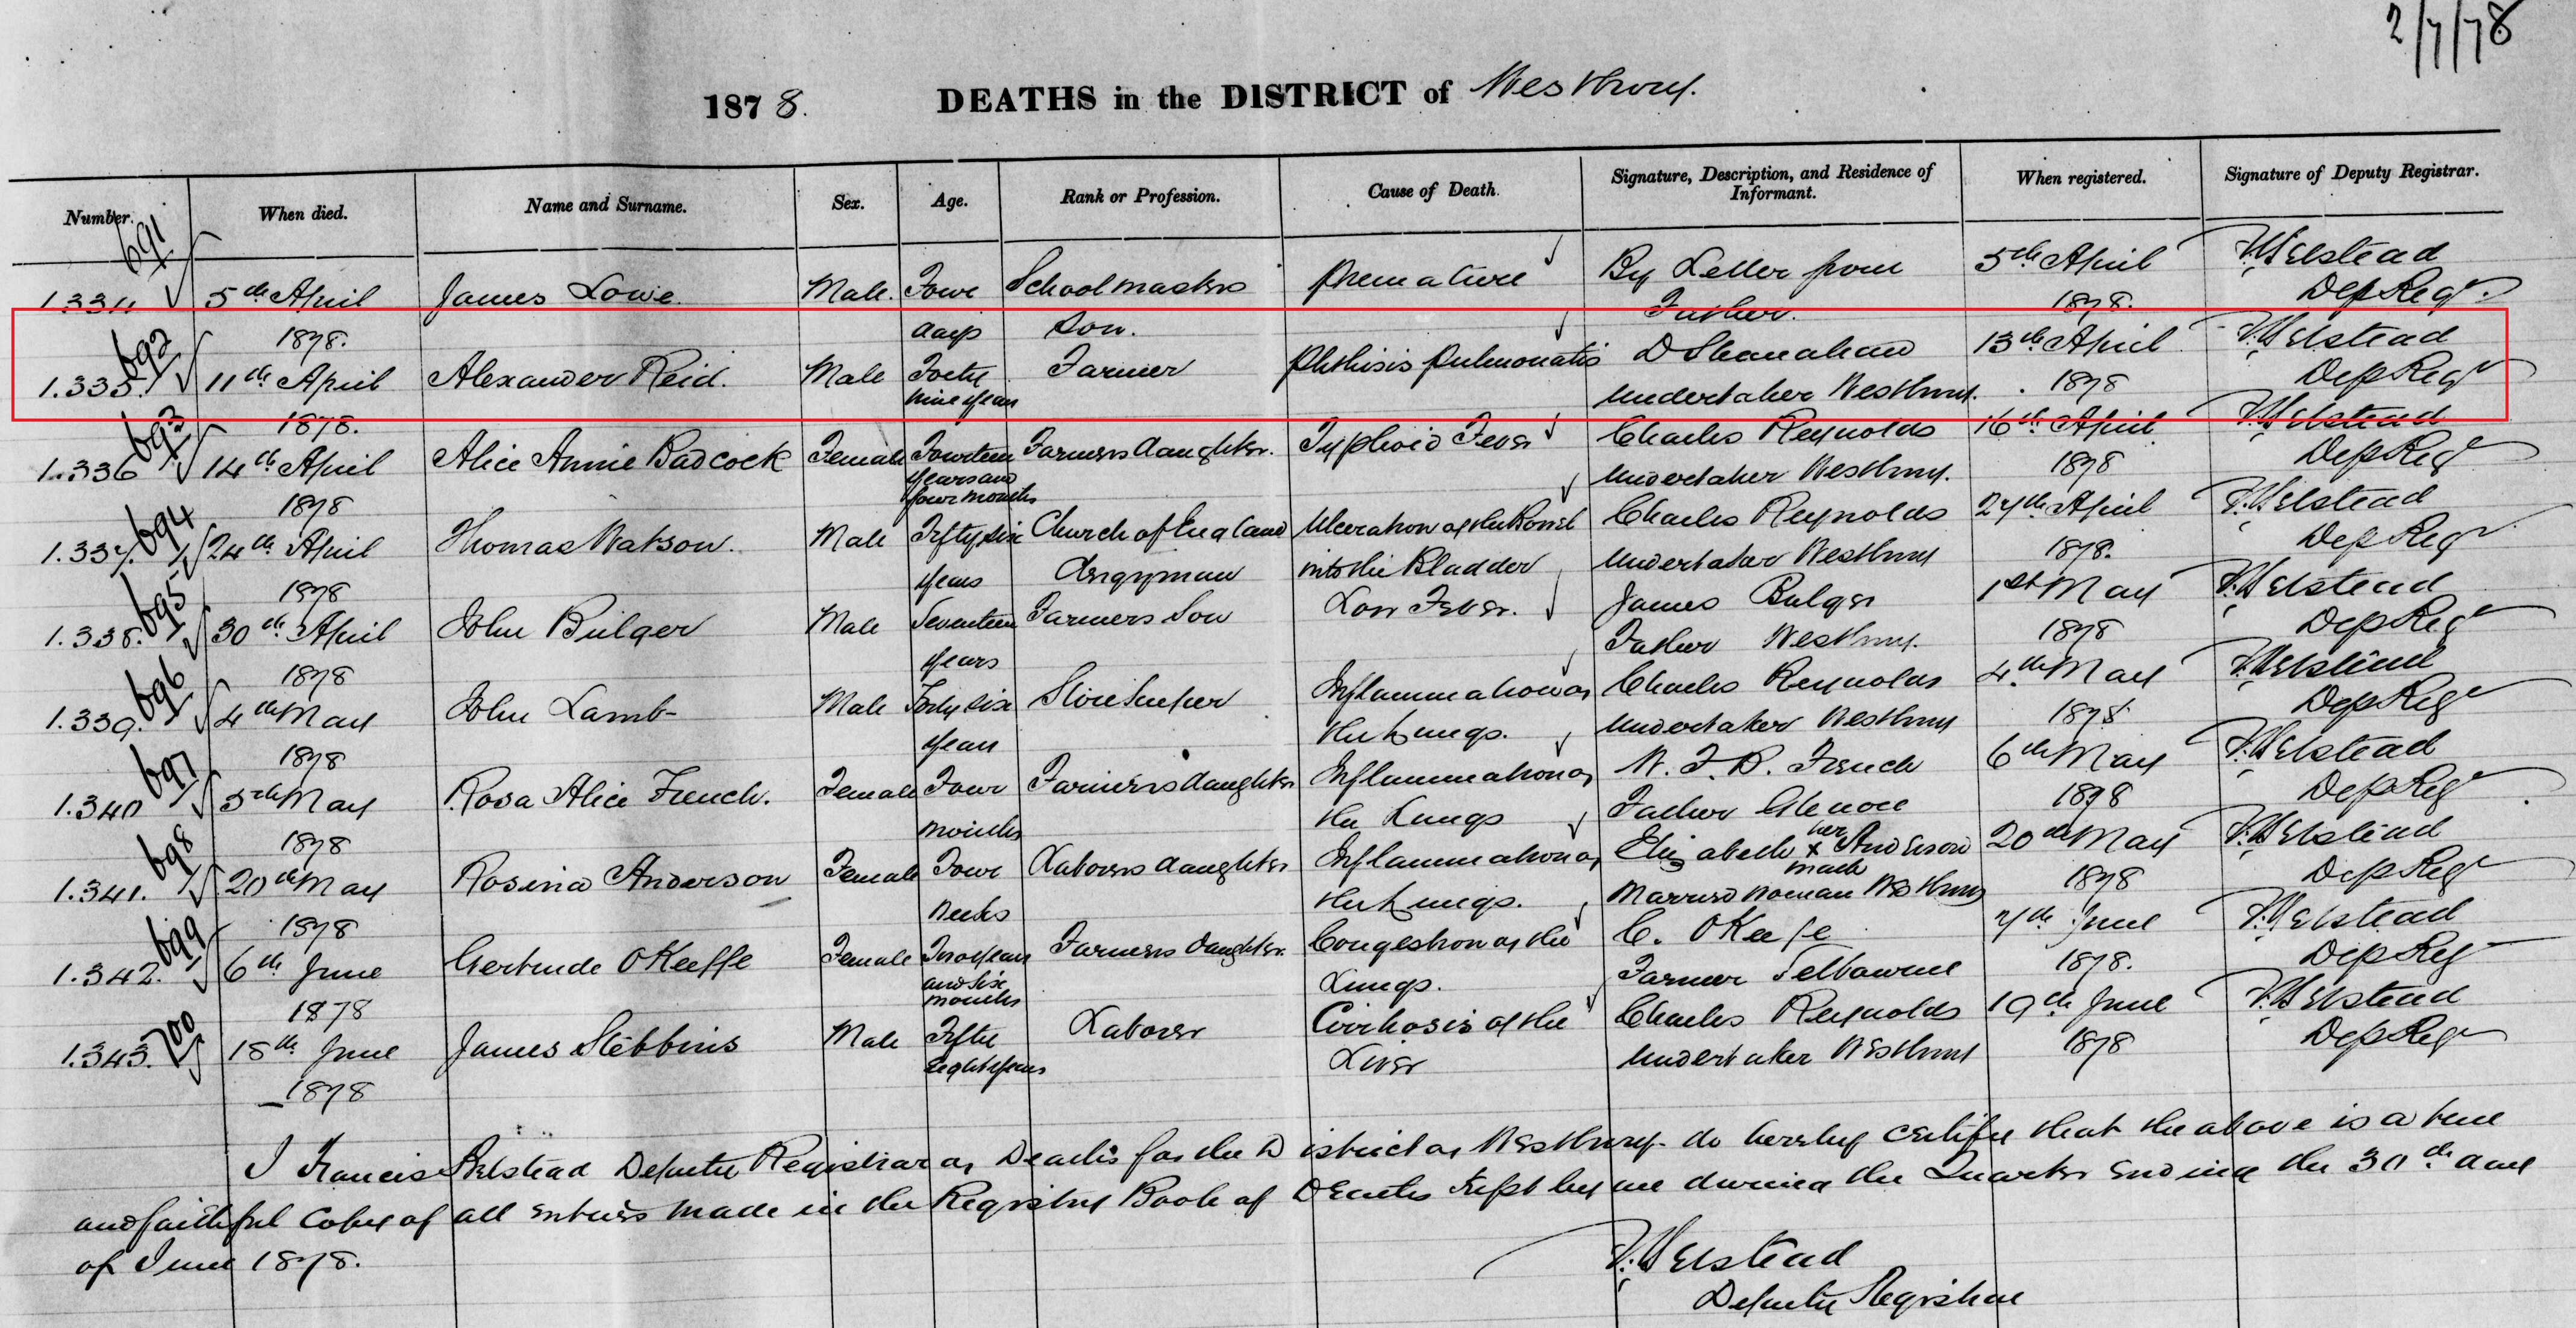 2/7/78
1878. DEATHS in the DISTRICT of Westbury.
Number. When died. Name and Surname. Sex. Age. Rank or Profession. Cause of Death. Signature, Description, and Residence of Informant. When registered. Signature of Deputy Registrar.
691
1.334 5th April James Lowe. Male. Four Schoolmasters premature By Letter from 5th April Elstead
1878. days Son. Father. 1878. Dep Regr.
692
1.335. 11th April Alexander Reid. Male Forty Farmer Phthisis Pulmonalis D Shanahan 13th April Elstead
1878. nine years Undertaker Westbury. 1878 Dep Regr
693
1.336 14th April Alice Annie Badcock Female Fourteen Farmers daughter. Typhoid Fever Charles Reynolds 16th April Elstead
1878 years and four months Undertaker Westbury. 1878 Dep Regr
694
1.337. 24th April Thomas Watson. Male Fifty six Church of England Ulceration of the Bowel Charles Reynolds 24th April Elstead
1878 years Clergyman into the Bladder Undertaker Westbury 1878. Dep Regr
695
1.338. 30th April John Bulger Male Seventeen Farmers Son Low Fever. James Bulger 1st May Elstead
1878 years Father Westbury. 1878 Dep Regr
696
1.339. 4th May John Lamb Male Forty six Storekeeper Inflammation of Charles Reynolds 4th May Elstead
1878 years the Lungs. Undertaker Westbury 1878 Dep Regr
697
1.340 5th May Rosa Alice French. Female Four Farmers daughter Inflammation of French 6th May Elstead
1878 months the Lungs Father Glenore 1878 Dep Regr
698
1.341. 20th May Rosina Anderson Female Four Laborers daughter Inflammation of Elizabeth her x mark Anderson 20th May Elstead
1878 weeks the Lungs. Married Woman Westbury 1878 Dep Regr
699
1.342. 6th June Gertrude OKeeffe Female Two years Farmers daughter. Congestion of the C. OKeefe 7th June Elstead
1878 and six months Lungs. Farmer Selbourne 1878. Dep Regr
700
1.343. 18th June James Stebbins Male Fifty Laborer Cirrhosis of the Charles Reynolds 19th June Elstead
1878 eight years Liver Undertaker Westbury 1878 Dep Regr
I Francis Belstead Deputy Registrar of Deaths for the District of Westbury do hereby certify that the above is a true
and faithful Copy of all entries made in the Registry Book of Deaths kept by me during the Quarter ending the 30th day
of June 1878.
Elstead
Deputy Registrar